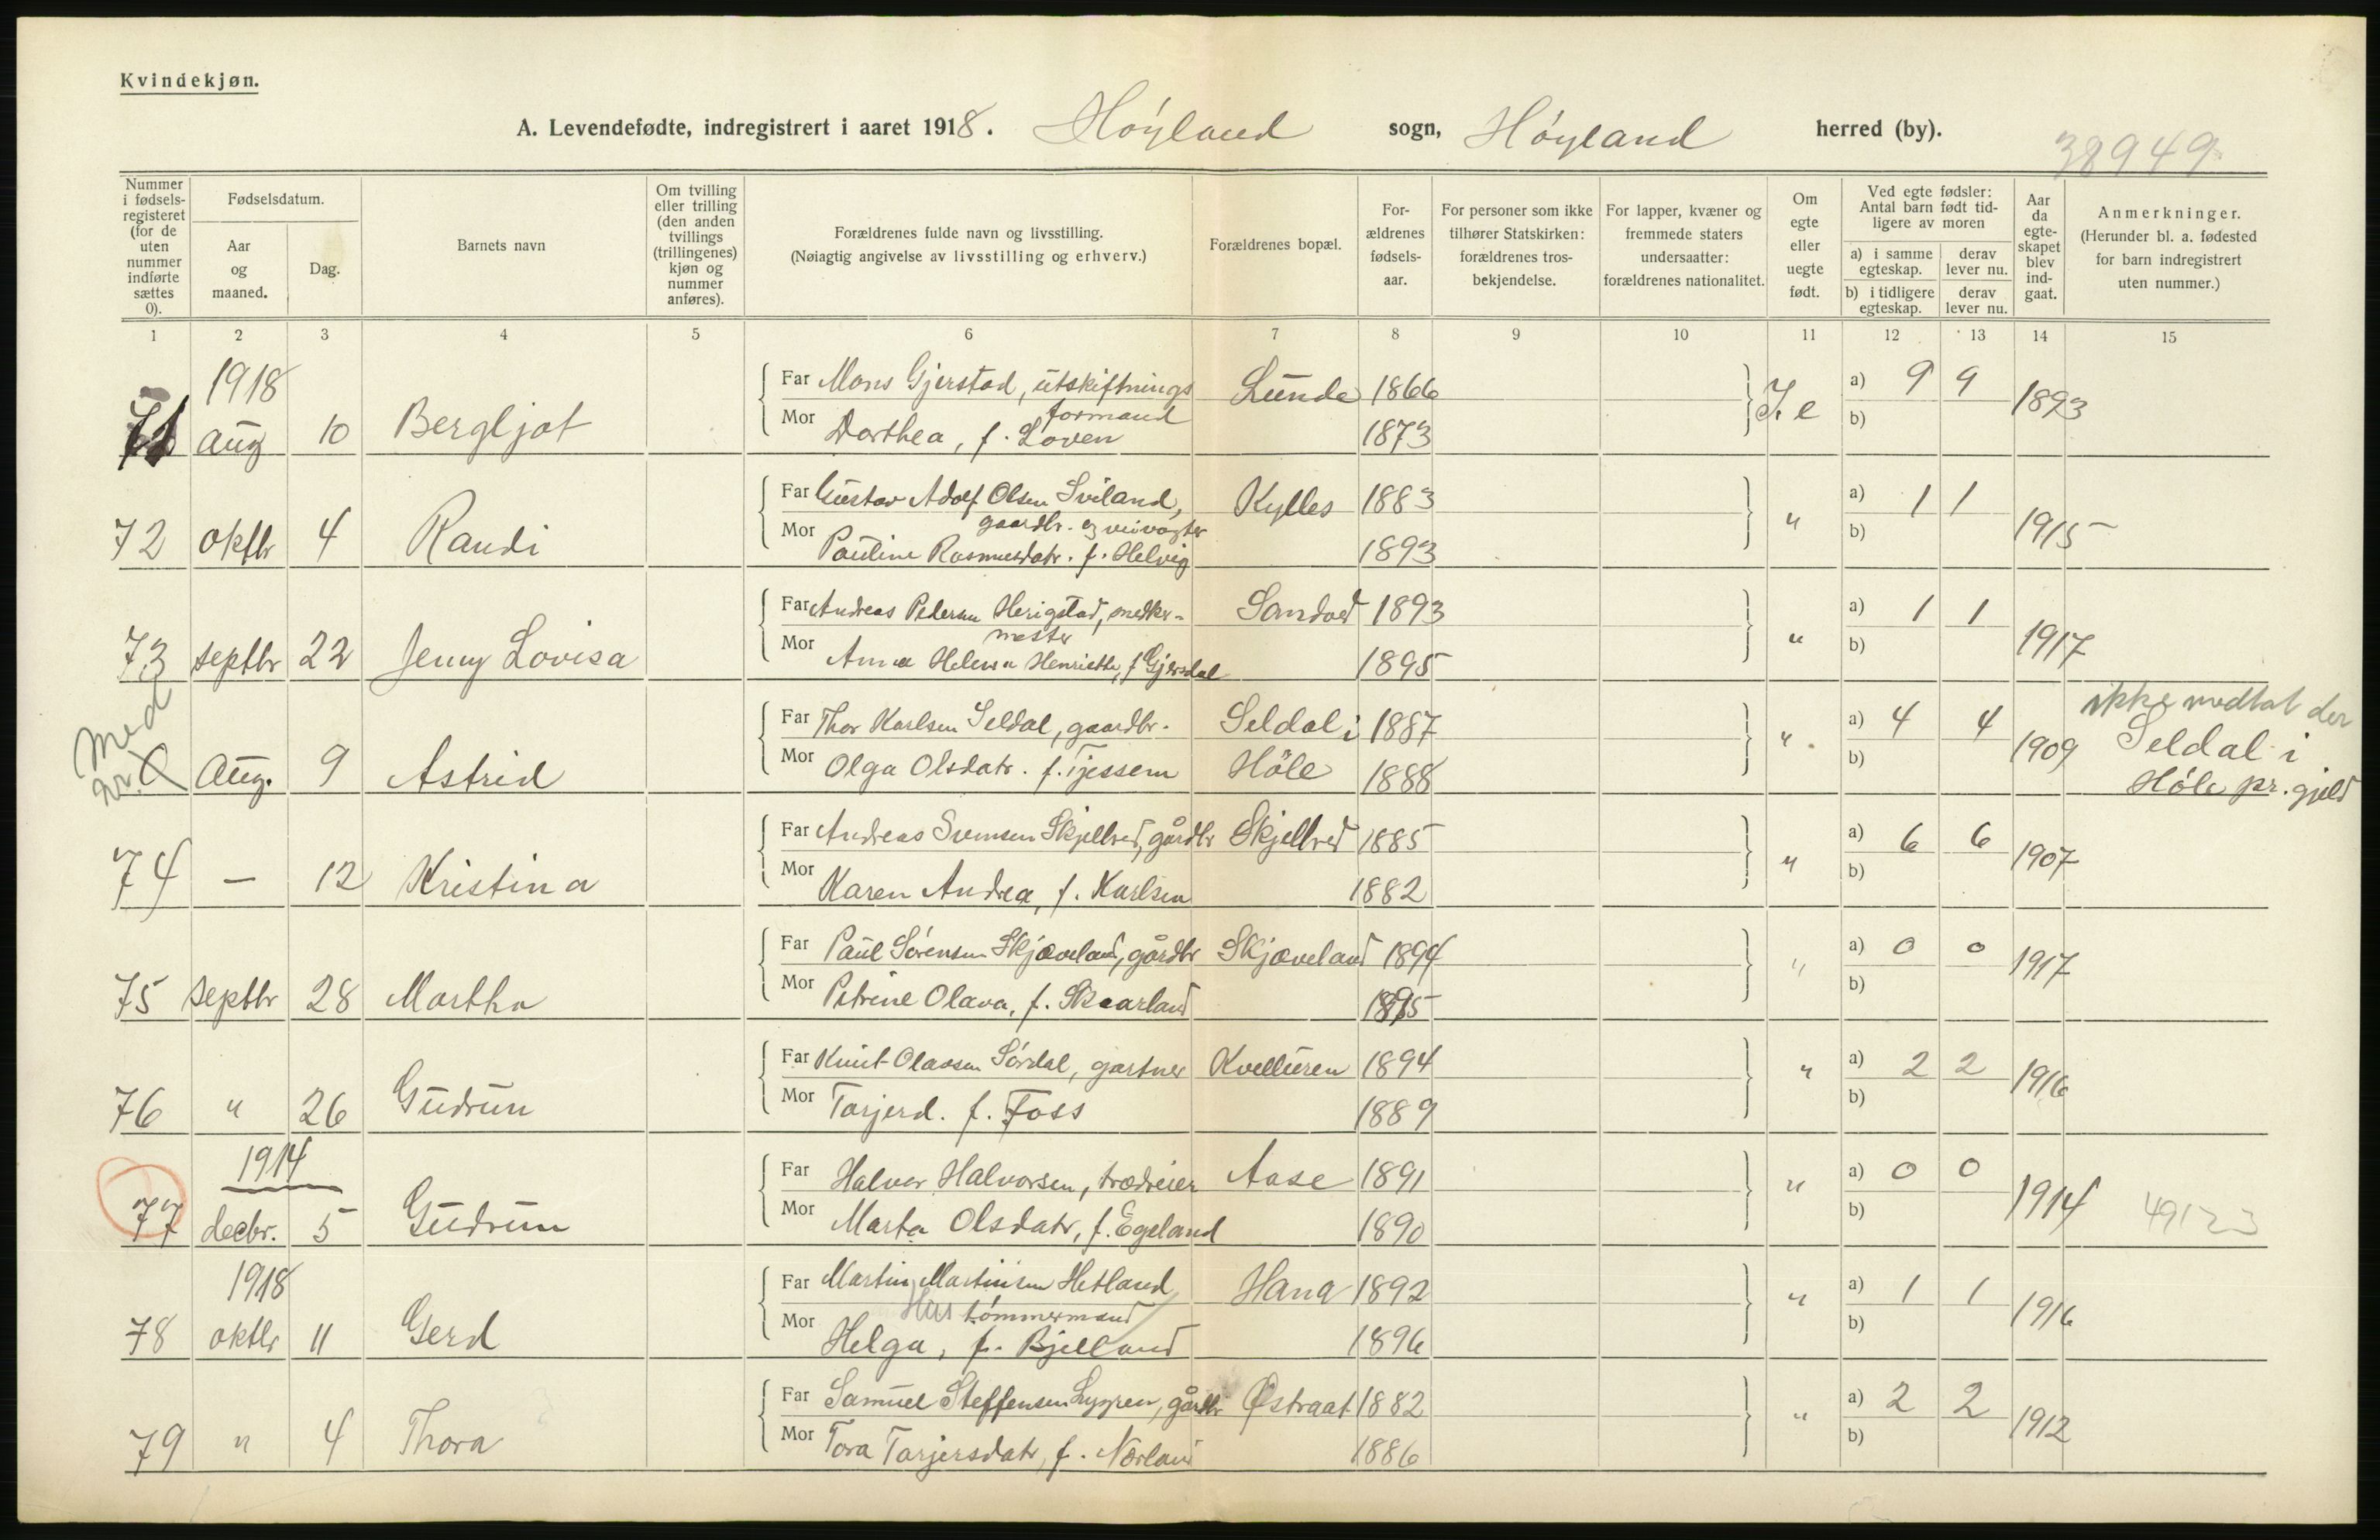 Kvindekjøn.
A. Levendefødte, indregistrert i aaret 1918. Höyland sogn, Höyland herred (by).
38949
Nummer i fødsels-registeret (for de uten nummer indførte sættes 0).
Fødselsdatum.
Aar og maaned.
Dag.
Barnets navn
Om tvilling eller trilling (den anden tvillings (trillingenes) kjøn og nummer anføres).
Forældrenes fulde navn og livsstilling.
(Nøiagtig angivelse av livsstilling og erhverv.)
Forældrenes bopæl.
For-ældrenes fødsels-aar.
For personer som ikke tilhører Statskirken: forældrenes tros-bekjendelse.
For lapper, kvæner og fremmede staters undersaatter: forældrenes nationalitet.
Om egte eller uegte født.
Ved egte fødsler: Antal barn født tid-ligere av moren
a) i samme egteskap. derav lever nu.
b) i tidligere egteskap. derav lever nu.
Aar da egte-skapet blev ind-gaat.
Anmerkninger.
(Herunder bl. a. fødested for barn indregistrert uten nummer.)
1 2 3 4 5 6 7 8 9 10 11 12 13 14 15
1918
Far Mons Gjerstad, utskiftnings Lunde 1866 a) 9 9
formand
71 Aug 10 Bergljot Mor Dorthea, f. Loven 1873 J. e b) 1893
Far Gustav Adolf Olsen Sviland, Kylles 1883 a) 1 1
gaardbr. og veivogter
72 oktbr 4 Randi Mor Pauline Rasmusdatr. f. Helvig 1893 " b) 1915
Far Andreas Pedersen Herigstad, snedker- Sandved 1893 a) 1 1
mester
73 septbr 22 Jenny Lovisa Mor Anna Helena Henriette, f Gjersdal 1895 " b) 1917
Med
nr. 0 Aug. 9 Astrid
Far Thor Karlsen Seldal, gaardbr. Seldal i 1887 a) 4 4 ikke medtat der
Mor Olga Olsdatr. f. Tjessem Höle 1888 " b) 1909 Seldal i
Höle pr.gjeld
Far Andreas Svensen Skjellved, gårdbr Skjellved 1885 a) 6 6
74 — 12 Kristina Mor Karen Andrea, f. Karlsen 1882 " b) 1907
Far Paul Sörensen Skjæveland, gårdbr Skjæveland 1894 a) 0 0
75 septbr 28 Martha Mor Petrine Olava, f. Skaarland 1895 " b) 1917
Far Knut Olassen Sördal, gartner Kvelluren 1894 a) 2 2
76 " 26 Gudrun Mor Tarjerd. f. Foss 1889 " b) 1916
1914
Far Halvor Halvorsen, trædreier Aase 1891 a) 0 0
77 decbr. 5 Gudrun Mor Marta Olsdatr, f. Egeland 1890 " b) 1914 49123
1918
Far Martin Martinsen Hetland Hana 1892 a) 1 1
Hus tömmermand
78 oktbr 11 Gerd Mor Helga, f. Bjelland 1896 " b) 1916
Far Samuel Steffensen Lyngren, gårdbr Østraat 1882 a) 2 2
79 " 4 Thora Mor Tora Tarjersdatr, f. Norland 1886 " b) 1912